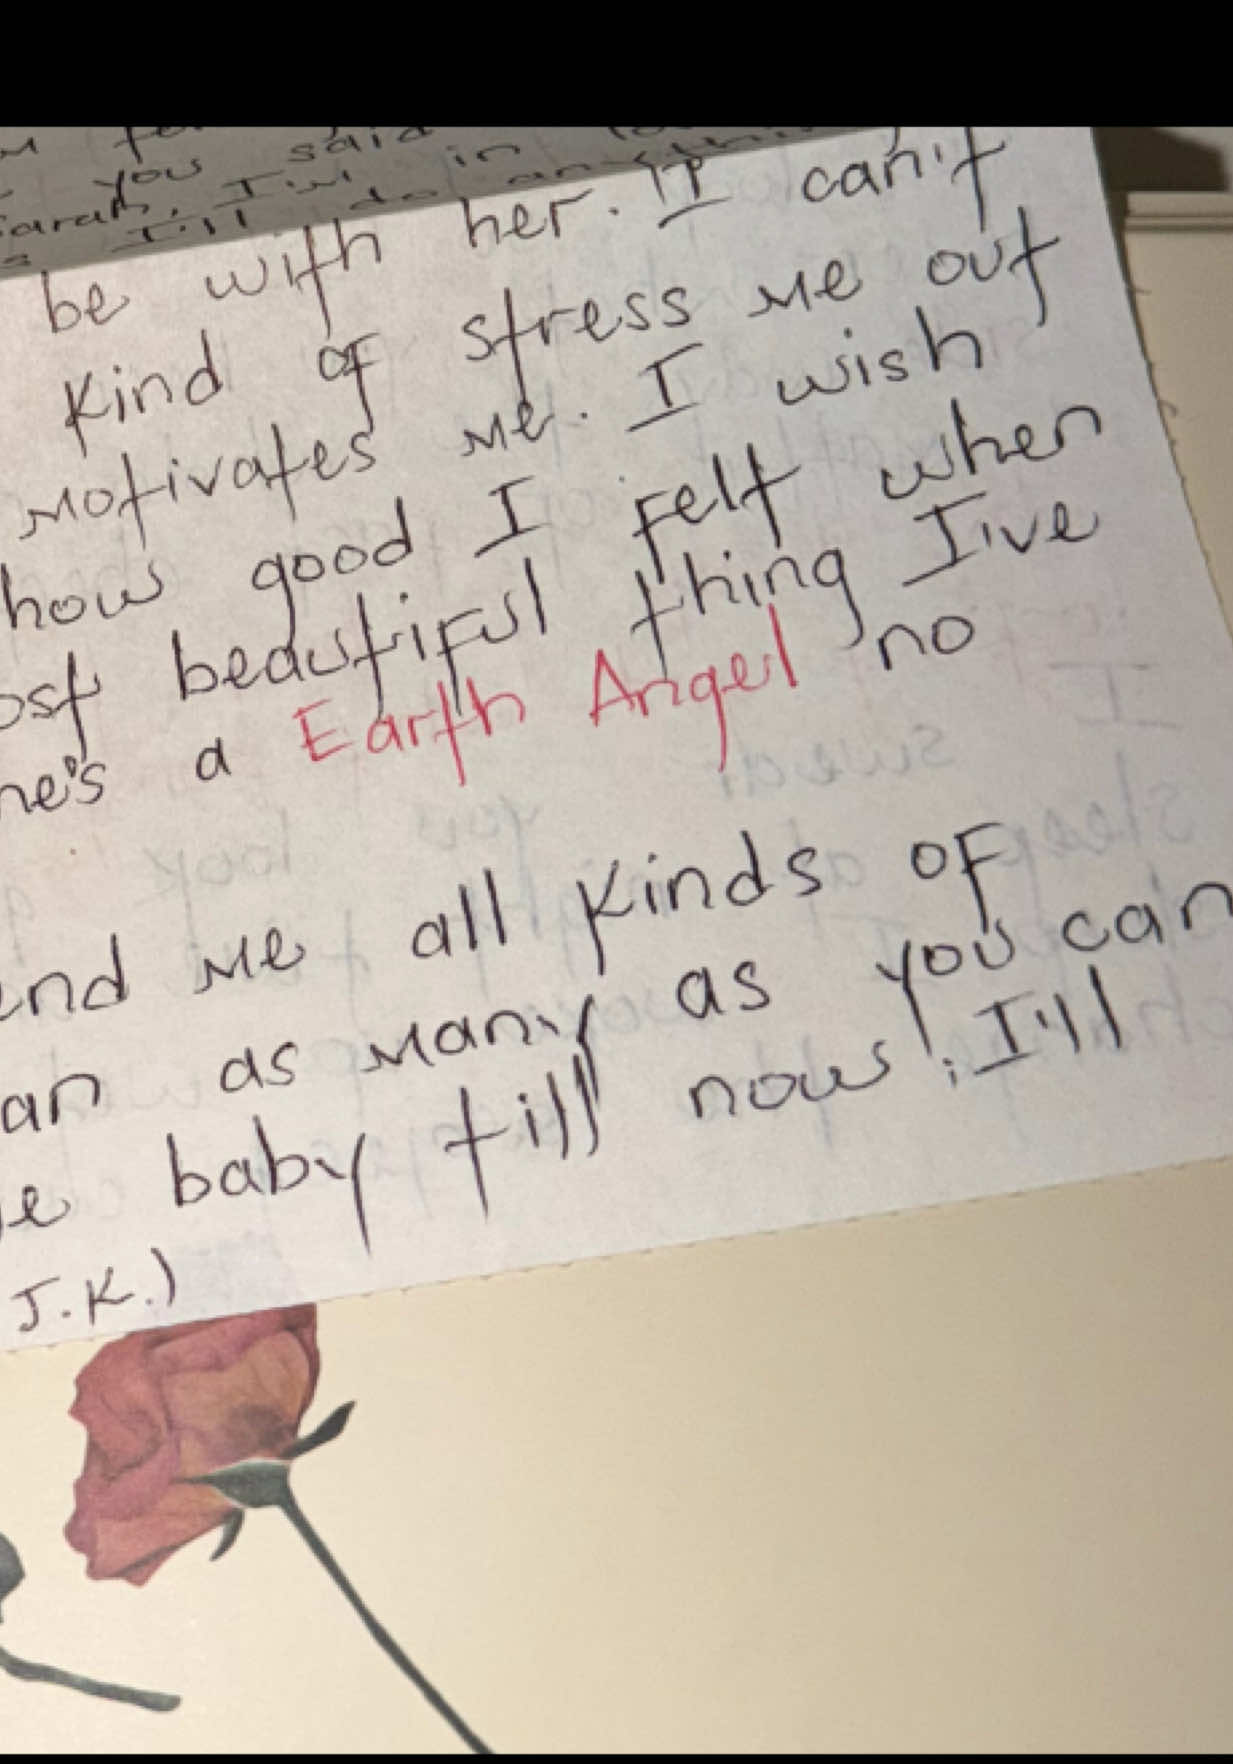 you said
I'm in
I'll do
be with her. I can't
kind of stress me out
motivates me. I wish
how good I felt when
beautiful thing I've
a Earth Angel no
me all kinds of
as many as you can
baby till now! I'll
J.K.)